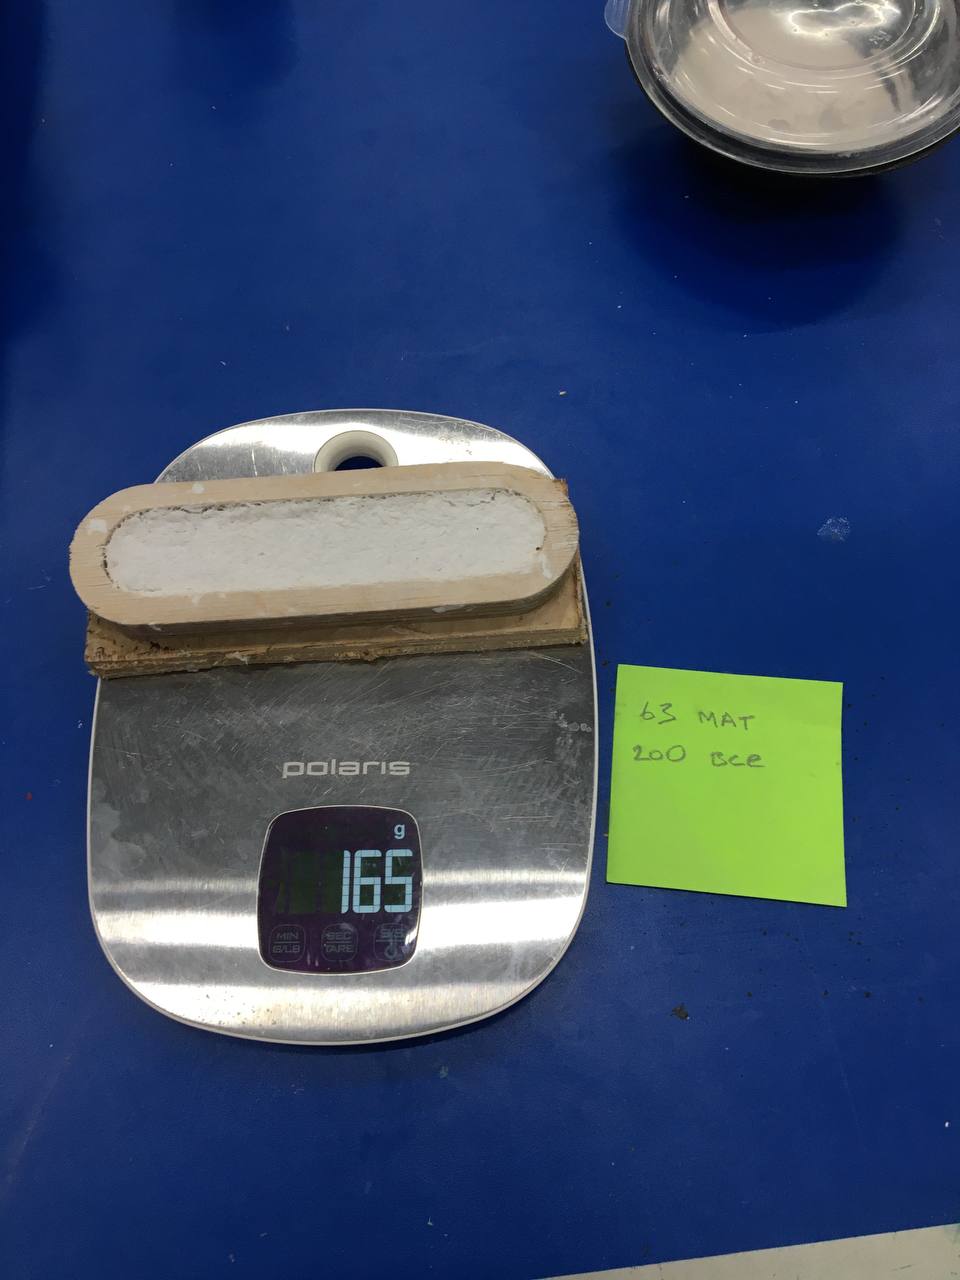 polaris
g
165
MIN
G/LB
SEC
TARE
63 МАТ
200 ВСЕ